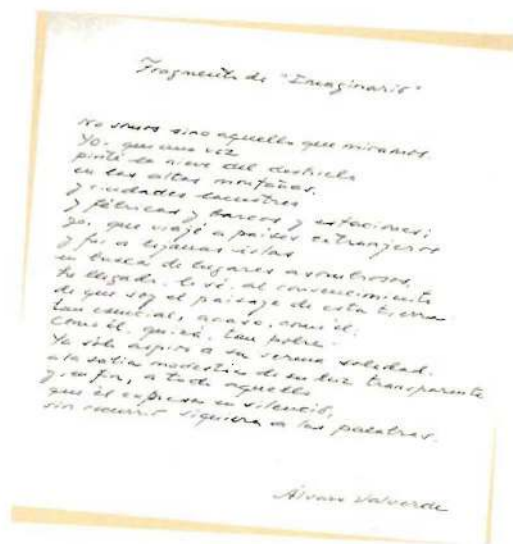 Fragmento de "Imaginario"
No somos sino aquello que miramos.
Yo, que una vez
pinté la nieve del deshielo
en las altas montañas,
y ciudades lacustres
y fábricas y barcos y estaciones;
yo, que viajé a países extranjeros
y fui a lejanas islas
en busca de lugares asombrosos,
he llegado, lo sé, al convencimiento
de que soy el paisaje de esta tierra
tan esencial, acaso, como él.
Como él, quizá, tan pobre.
Ya sólo aspiro a su serena soledad.
a la sabia modestia de su luz transparente
y, en fin, a todo aquello
que él expresa en silencio,
sin recurrir siquiera a las palabras.
Álvaro Valverde